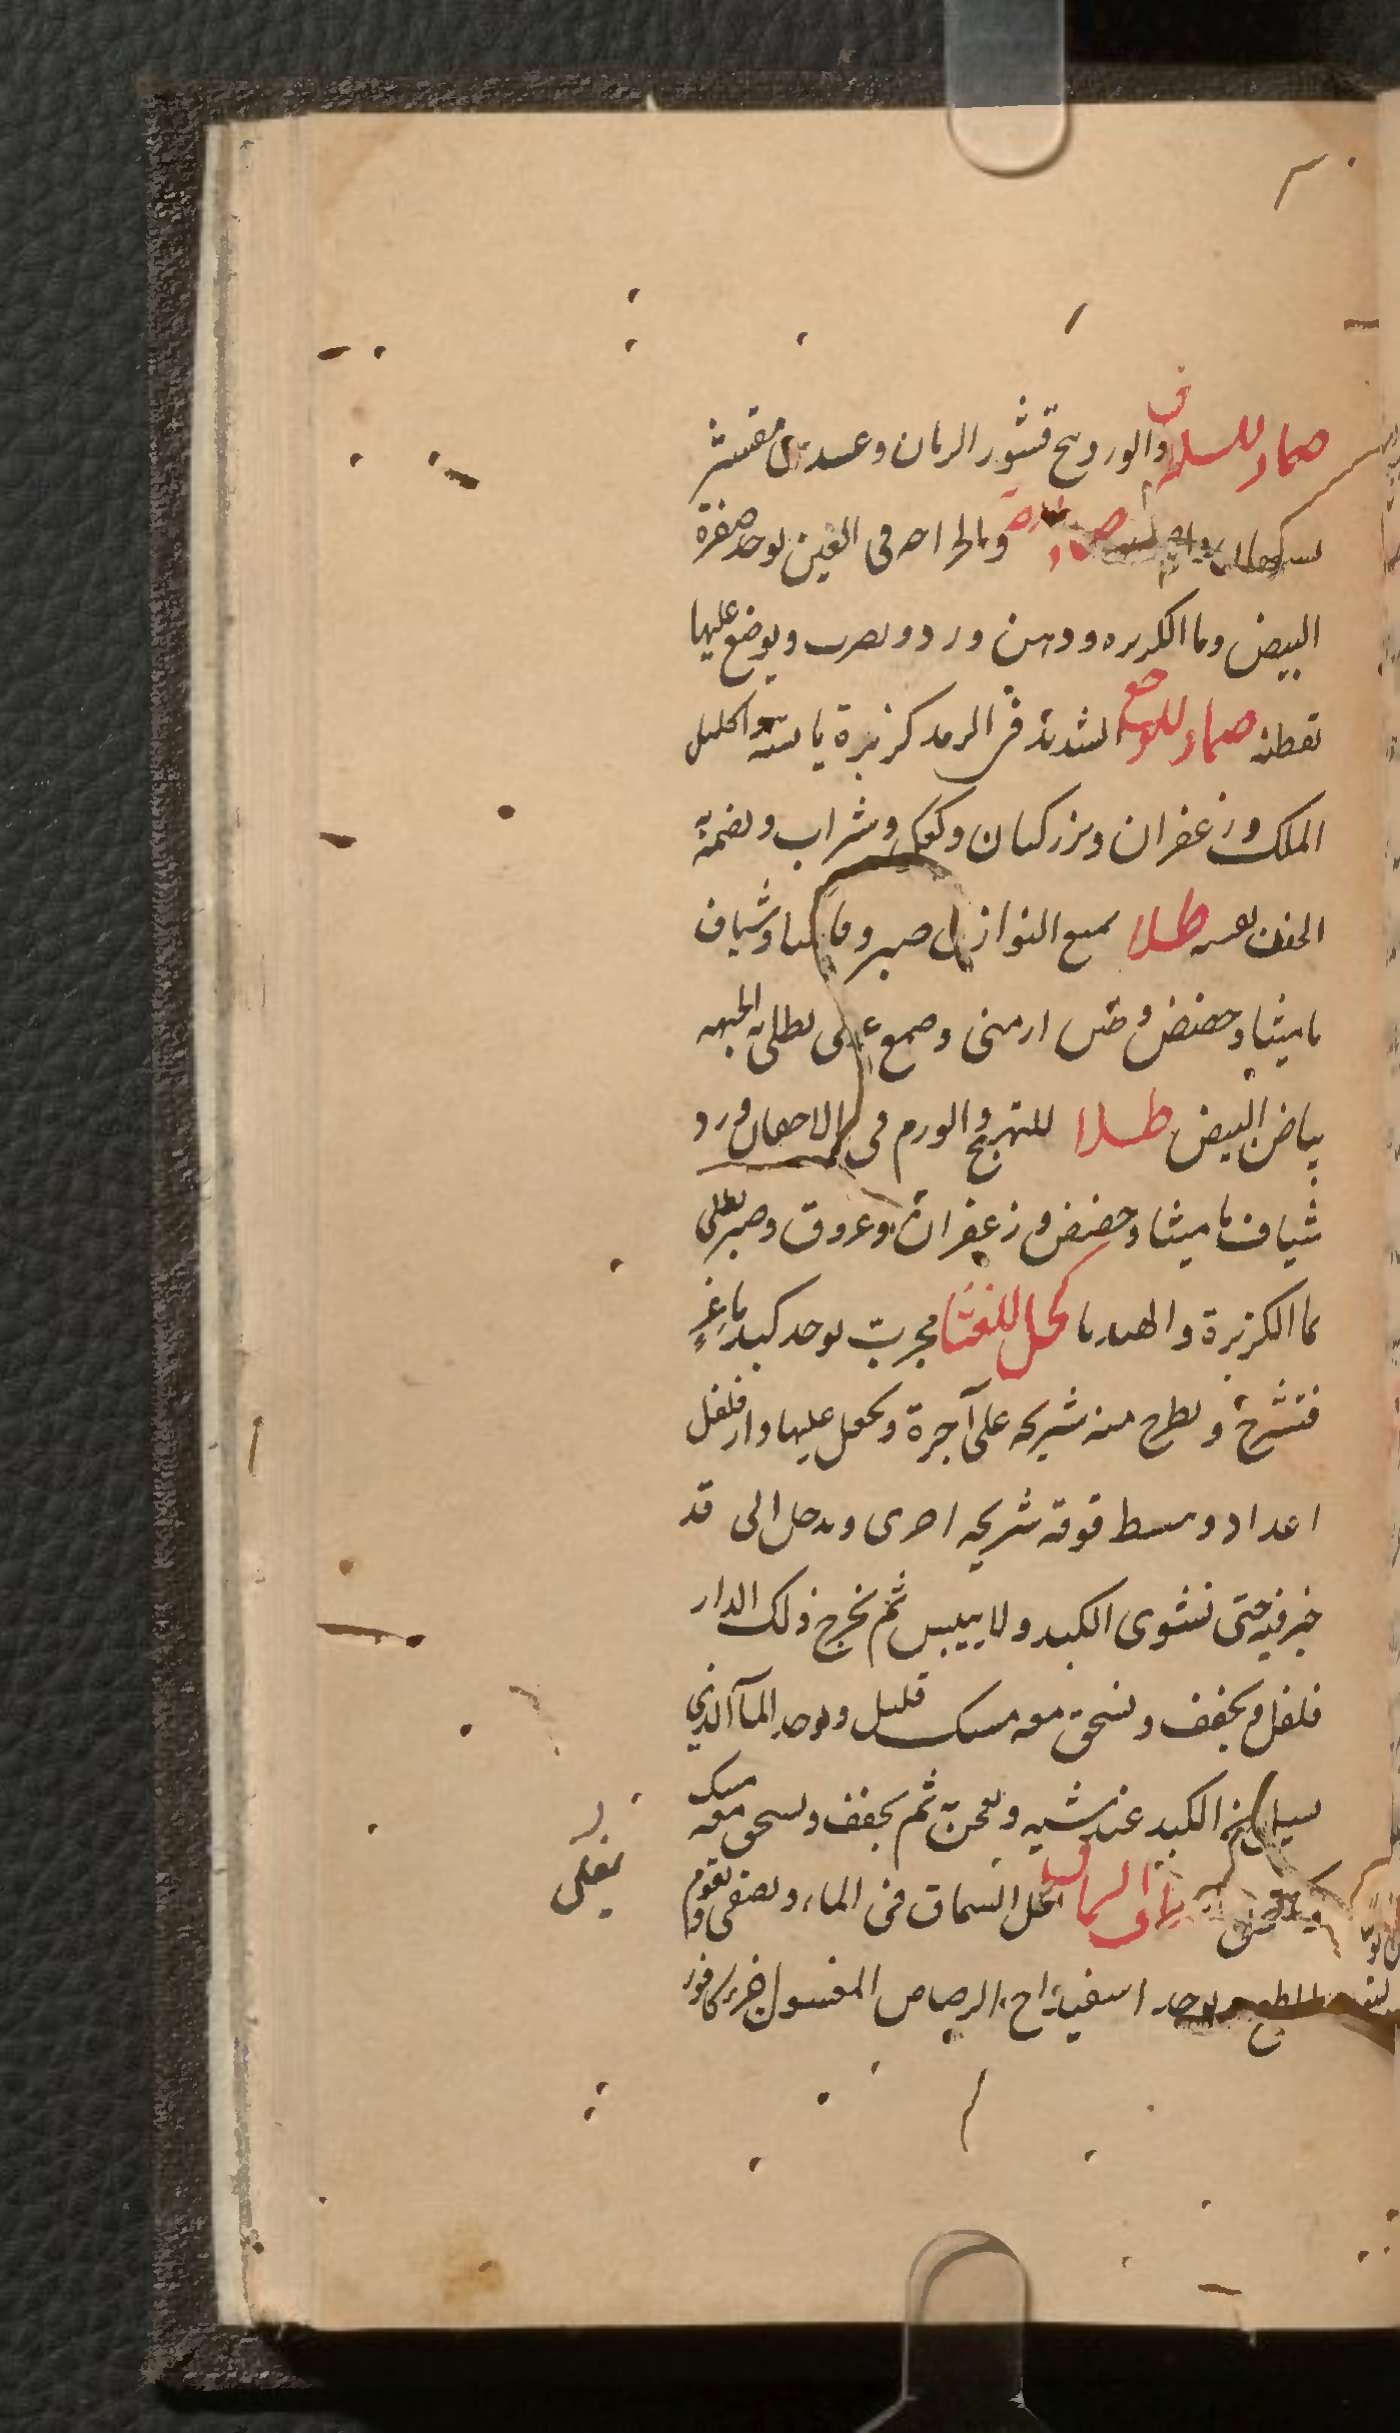 ضماد للسلاق والوردينج قشور الرمان وعدس مقشر
وبالحراحه فى العين يوحد صفرة
البيض وما الكزبره ودهن ورد ويضرب ويوضع عليها
بقطنه ضماد للوجع الشديد فى الرمد كزبرة يابسة واكليل
الملك وزعفران وبزر كتان وكعك وشراب ويضمد به
الجفن نفسه طلا يمنع النوازل صبر واقاقيا وشياف
ماميثا وحضض وطين ارمنى وصمغ عربى يطلى به الجبهه
بياض البيض طلا للتهيج والورم فى الاجفان ورد
شياف ماميثا وحضض وزعفران وعروق وصبر يطلى
بما الكزبرة والهندبا كحل للغشا مجرب يوحد كبد ماعز
فتشرح ويطرح منه شريحه على آجرة ويجعل عليها دار فلفل
اعداد ويبسط فوقه شريحه اخرى ويدخل الى قد
خبز فيه حتى تنشوى الكبد ولا ييبس ثم يخرج ذلك الدار
فلفل ويجفف ويسحق معه مسك قليل ويوحد المآ الذي
يسيل من الكبد عند شيه ويعجن ثم يجفف ويسحق معه مسك
السماق اغل السماق فى الماء ويصفى ويقوم
يوحد اسفيداج الرصاص المغسول جزء كافور
يغلى